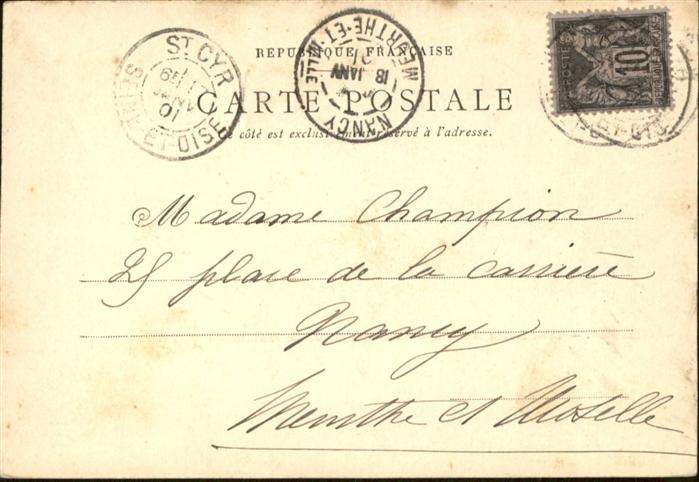 RÉPUBLIQUE FRANÇAISE
CARTE POSTALE
Ce côté est exclusivement réservé à l'adresse.
ST CYR
JANV
01
SEINE ET OISE
NANCY
18 JANV
01
MEURTHE-ET-MOSELLE
10
Madame Champion
25 place de la carrière
Nancy
Meurthe et Moselle